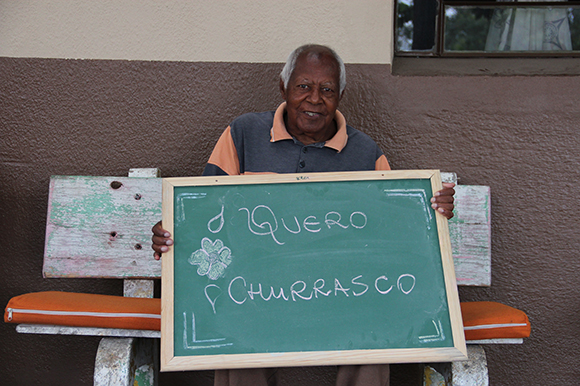 Quero
Churrasco